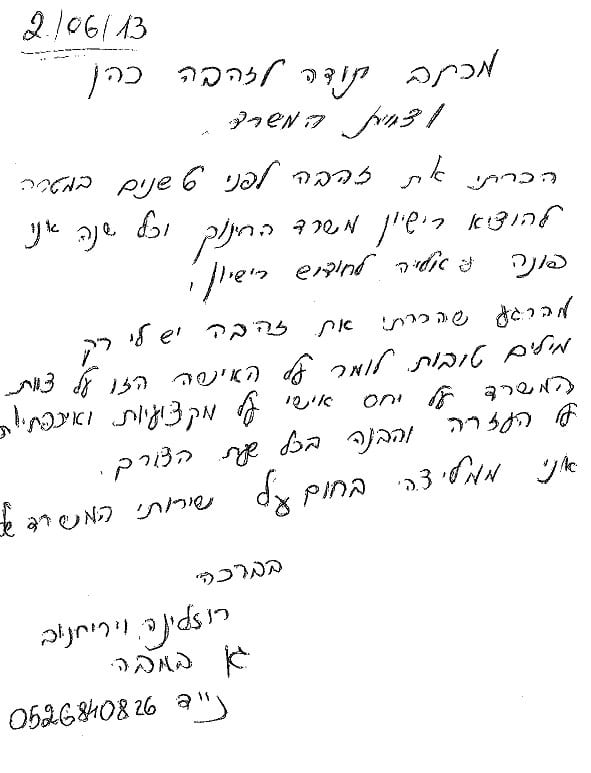 2/06/13
מכתב תודה לזהבה כהן
וצוות המשרד.
הכרתי את זהבה לפני 6 שנים במטרה
להוציא רישיון משרד החינוך וכל שנה אני
פונה אליה לחידוש רישיון,
מהרגע שהכרתי את זהבה יש לי רק
מילים טובות לומר על האישה הזו על צוות
המשרד על יחס אישי על מקצועיות ואיכפתיות
על העזרה והבנה בכל שעת הצורך.
אני ממליצה בחום על שירותי המשרד של
בברכה
רוזלינה
גן במבה
נייד 0526840826